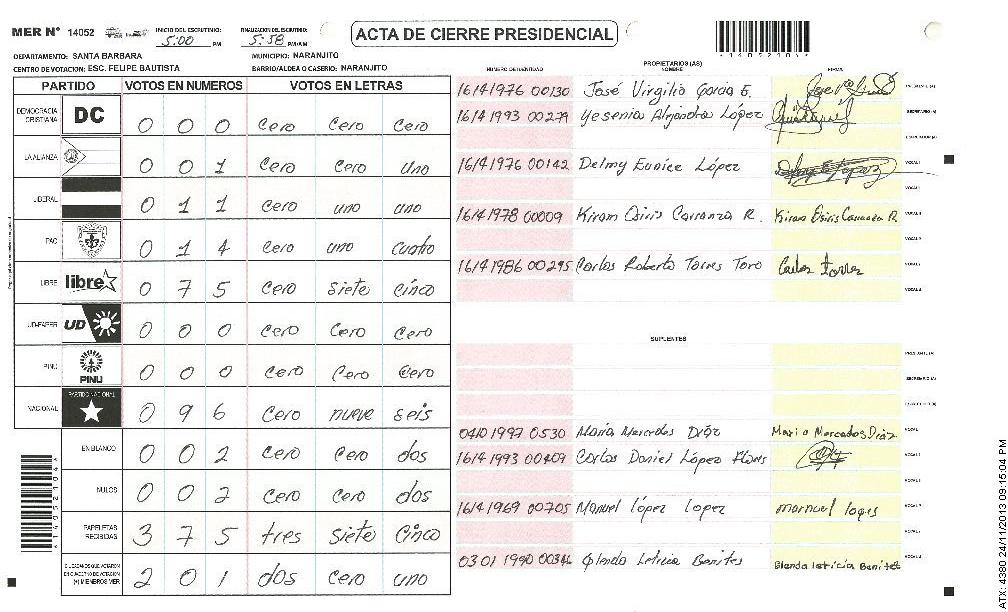 MER N° 14052
INICIO DEL ESCRUTINIO: 5:00 PM
FINALIZACION DEL ESCRUTINIO: 5:58 PM/AM
ACTA DE CIERRE PRESIDENCIAL
*14052104*
DEPARTAMENTO: SANTA BARBARA
MUNICIPIO: NARANJITO
CENTRO DE VOTACION: ESC. FELIPE BAUTISTA
BARRIO/ALDEA O CASERIO: NARANJITO
PARTIDO VOTOS EN NUMEROS VOTOS EN LETRAS
DEMOCRACIA CRISTIANA DC 0 0 0 cero cero cero
LA ALIANZA 0 0 1 cero cero uno
LIBERAL 0 1 1 cero uno uno
PAC 0 1 4 cero uno cuatro
LIBRE libre 0 7 5 cero siete cinco
UD-FAPER UD 0 0 0 cero cero cero
PINU PINU 0 0 0 cero cero cero
NACIONAL PARTIDO NACIONAL 0 9 6 cero nueve seis
EN BLANCO 0 0 2 cero cero dos
NULOS 0 0 2 cero cero dos
PAPELETAS RECIBIDAS 3 7 5 tres siete cinco
CIUDADANOS QUE VOTARON (+) MIEMBROS MER 2 0 1 dos cero uno
PROPIETARIOS (AS)
NUMERO DE IDENTIDAD NOMBRE FIRMA
1614 1976 00130 José Virgilio Garcia E. PRESIDENTE (A)
1614 1993 00279 Yesenia Alejandra López SECRETARIO (A)
ESCRUTADOR (A)
1614 1976 00142 Delmy Eunice López VOCAL
1614 1978 00009 Kiram Osiris Carranza R. Kiram Osiris Carranza R VOCAL
1614 1986 00295 Carlos Roberto Torres Toro Carlos Torres VOCAL
SUPLENTES
PRESIDENTE (A)
SECRETARIO (A)
ESCRUTADOR (A)
0410 1997 0530 Maria Mercedes Diáz Maria Mercedes Diáz VOCAL
1614 1993 00409 Carlos Daniel López Flores VOCAL
1614 1969 00705 Manuel lópez lopez marnuel lopes VOCAL
0301 1990 00346 Glenda Leticia Benites Glenda leticia Benites VOCAL
*14052104*
ATX: 4380 24/11/2013 09:15:04 PM